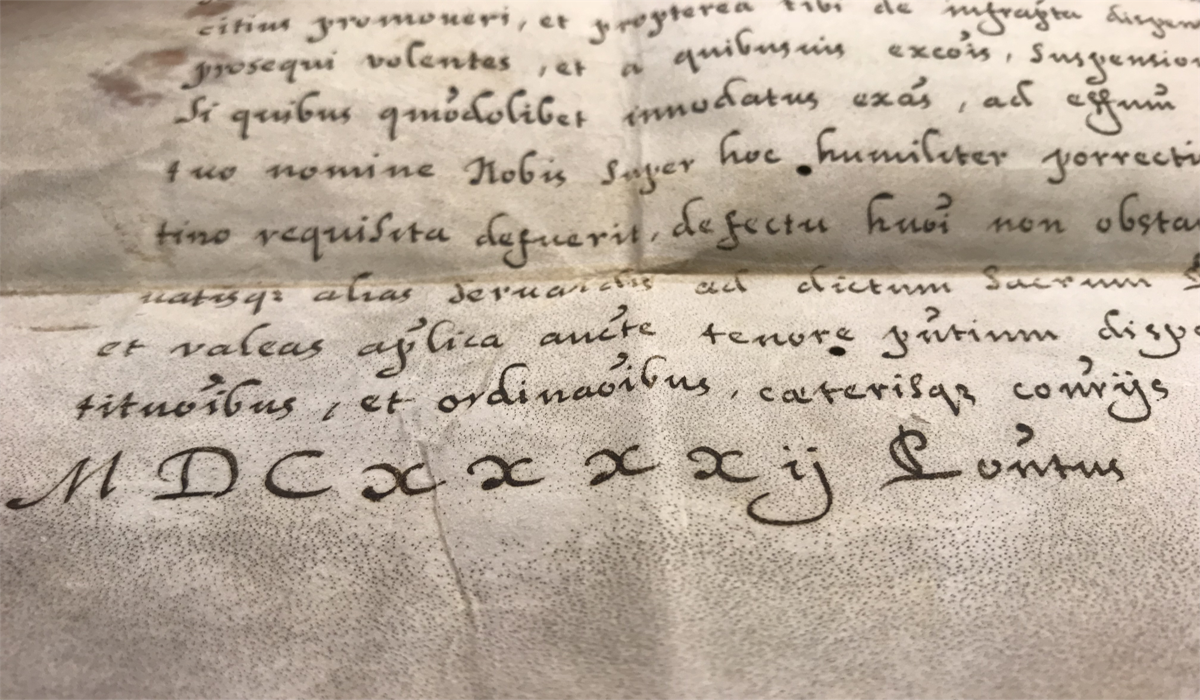 citius promoveri, et propterea tibi de infrapta dispen
prosequi volentes, et a quibusuis excois, Suspension
Si quibus qmodolibet innodatus exas, ad effum
tuo nomine Nobis Super hoc humiliter porrecti
tino requisita defuerit, defectu huoi non obsta
uatisqz alias Seruandis ad dictum Sacrum
et valeas aplica aucte tenore pntium dispe
tituoibus, et ordinaoibus, cæterisqz conrijs
M D C x x x x ij Pontus